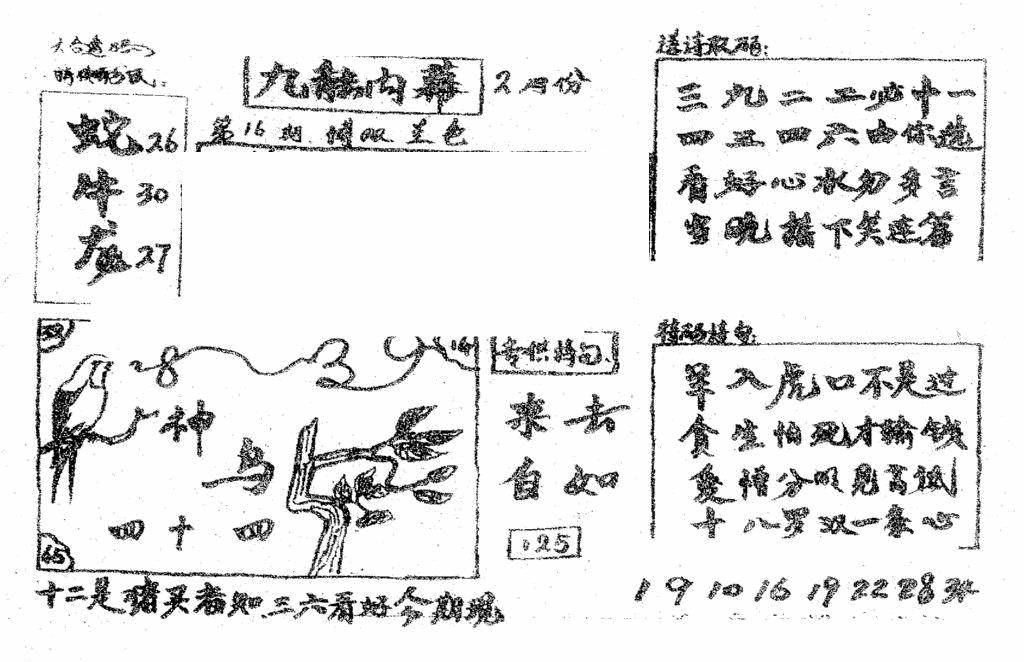 九龙内幕 2月份
第16期 博双 兰色
蛇26
牛30
龙27
送诗取码:
三九二二必十一
四五四六由你选
看好心水勿多言
当晚搞下笑连篇
28
神
鸟
四十四
45
专供特句
来去
自如
125
特码诗句:
羊入虎口不是过
贪生怕死才输钱
爱憎分明见高低
十八罗双一条心
十二是猪买者知 三六看好今期现
1 9 10 16 19 22 28